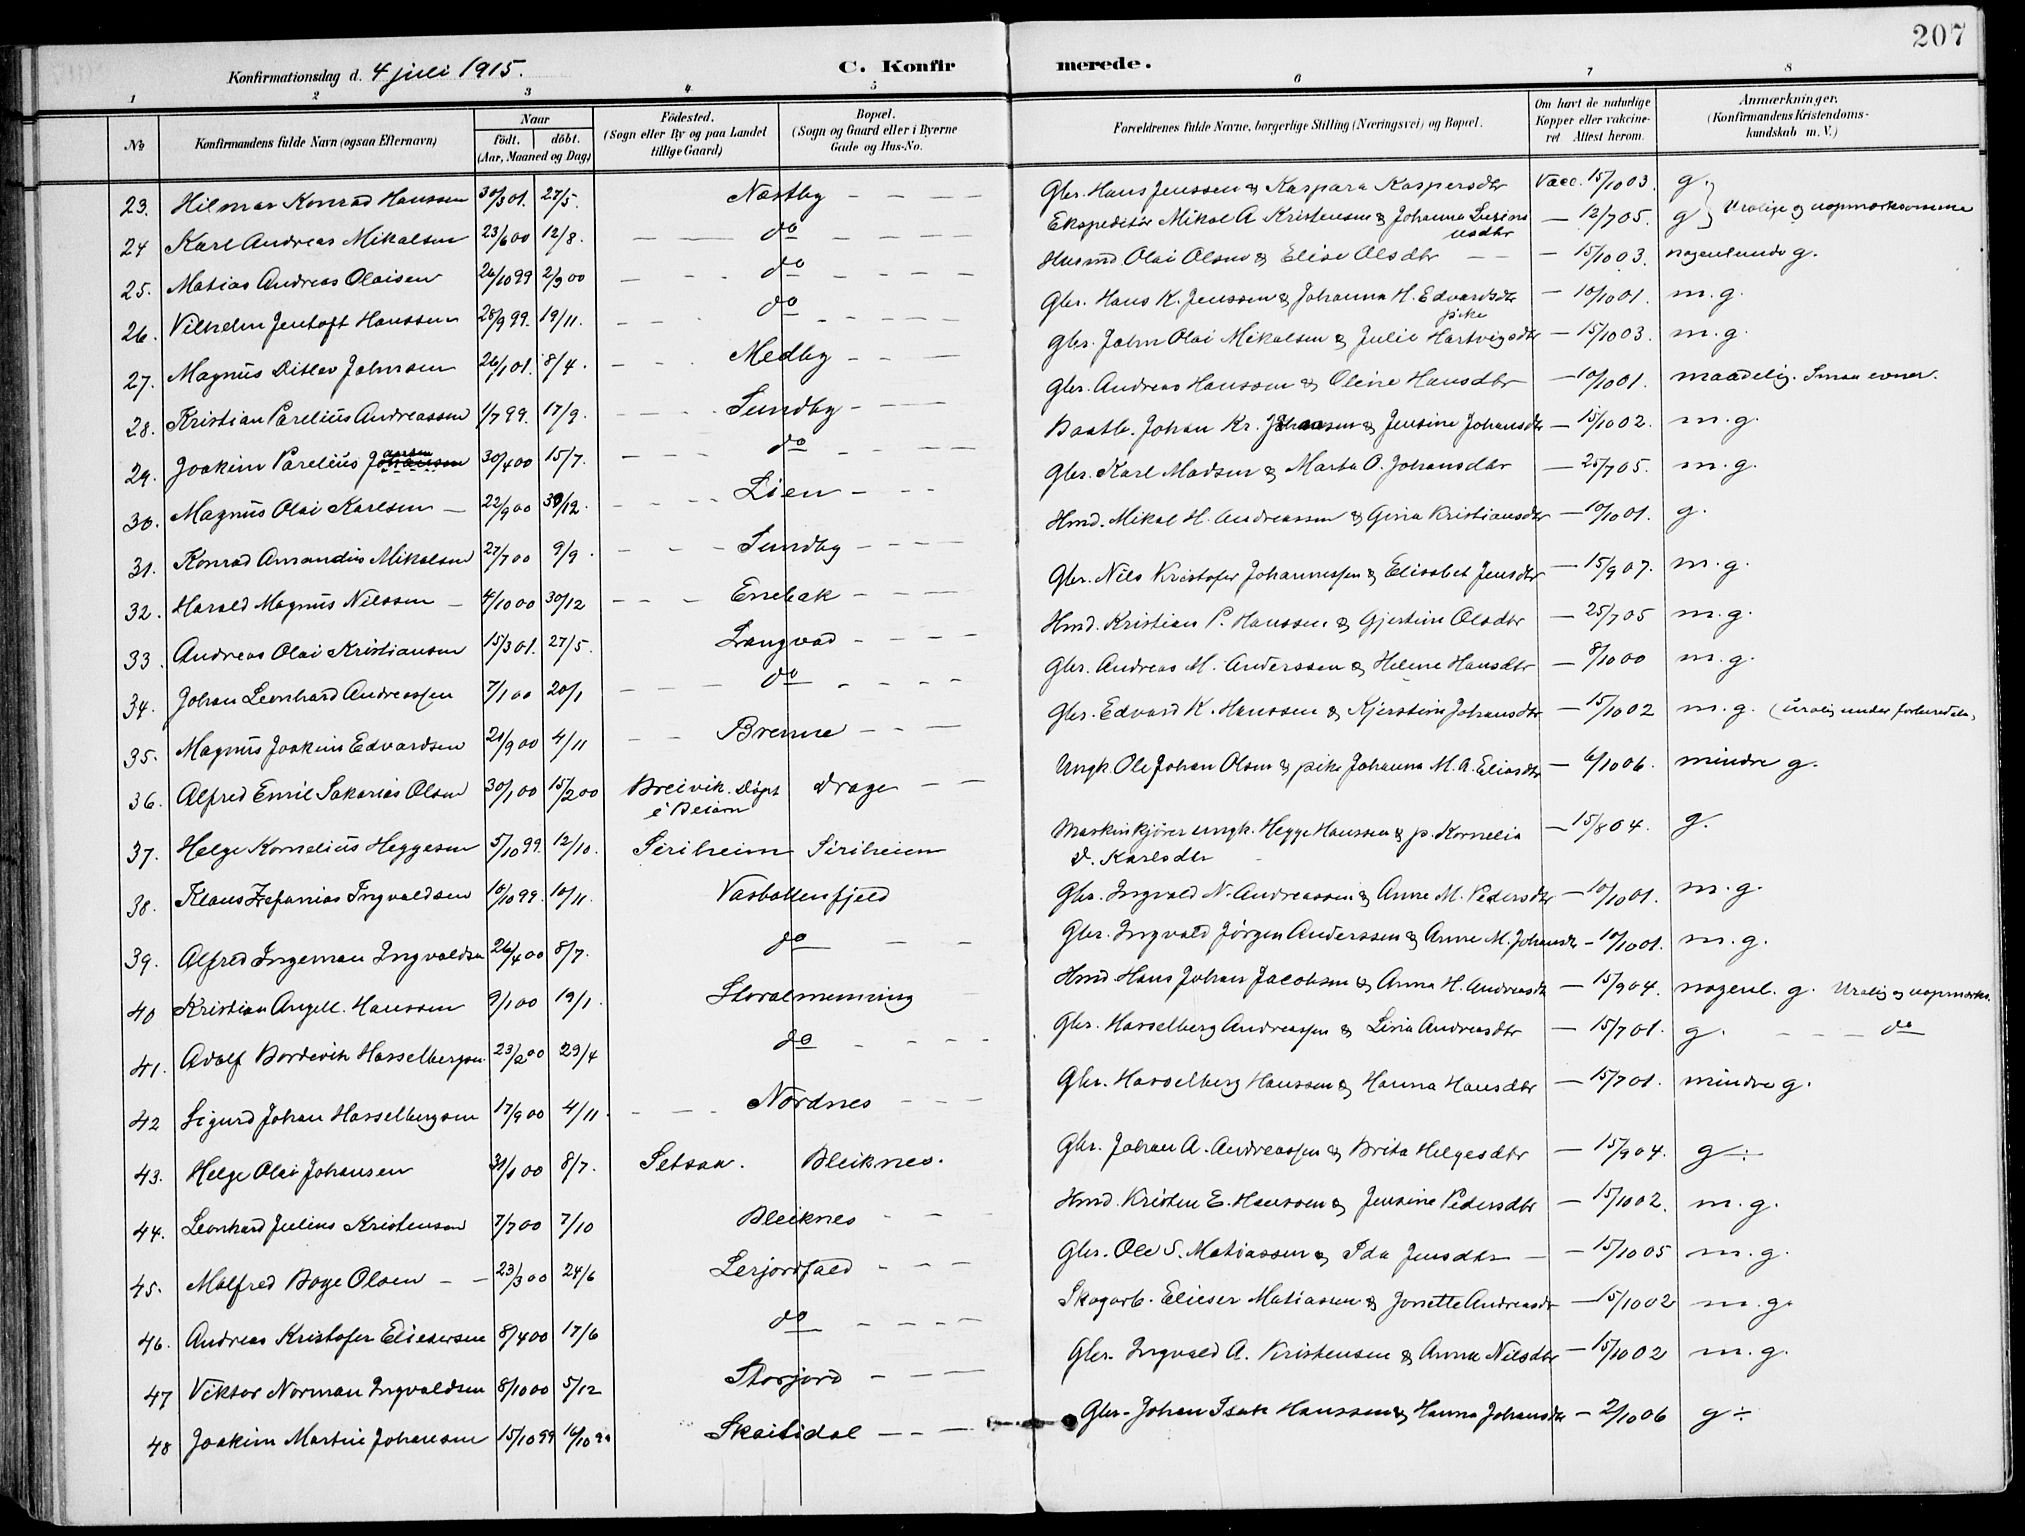 207
Konfirmationsdag d. 4 juli 1915.
C. Konfirmerede.
1 2 3 4 5 6 7 8
No Konfirmandens fulde Navn (ogsaa Efternavn) Naar født. døbt. (Aar, Maaned og Dag) Fødested. (Sogn eller By og paa Landet tillige Gaard) Bopæl. (Sogn og Gaard eller i Byerne Gade og Hus-No. Forældrenes fulde Navne, borgerlige Stilling (Næringsvei) og Bopæl. Om havt de naturlige Kopper eller vakcineret Attest herom. Anmærkninger. (Konfirmandens Kristendomskundskab m. V.)
23. Hilmar Konrad Hanssen 30/3 01. 27/5. Næstby Gbr. Hans Jenssen & Kaspara Kaspersdtr Vacc. 15/10 03. g.
24 Karl Andreas Mikalsen 23/6 00 12/8. do Ekspeditør Mikal A Kristensen & Johanna — 12/7 05. g } Urolige og uopmerksomme
25. Matias Andreas Olaisen 26/10 99 2/9 00 do Husmd Olai Olsen & Elise Olsdtr — 15/10 03. nogenlunde g.
26. Vilhelm Jentoft Hanssen 28/9 99. 19/11. do Gbr. Hans K. Jenssen & Johanna H. Edvardsdtr — 10/10 01. m.g.
27. Magnus Ditlev Johnsen 26/1 01. 8/4. Medby gbr. John Olai Mikalsen & pike Julie Hartvigsdtr — 15/10 03. m.g.
28. Kristian Parelius Andreassen 1/7 99. 17/9. Sundby Gbr. Andreas Hanssen & Oline Hansdtr — 10/10 01. maadelig. Smaa evner.
29. Joakim Parelius Johansen 30/4 00 15/7. do Baatb. Johan Kr. Johansen & Jensine Johansdtr — 15/10 02. m.g.
30. Magnus Olai Karlsen 22/9 00 30/12. Lien Gbr. Karl Madsen & Marta O. Johansdtr — 25/7 05. m.g.
31. Konrad Amandus Mikalsen 27/7 00 9/9. Sundby Hmd. Mikal H. Andreassen & Gina Kristiansdtr — 10/10 01. g.
32. Harald Magnus Nilssen 4/10 00 30/12 Enebak Gbr. Nils Kristofer Johannessen & Elisabet Jensdtr — 15/9 07. m.g.
33. Andreas Olai Kristiansen 15/3 01. 27/5. Langvad Hmd. Kristian P. Hanssen & Gjertine Olsdtr — 25/7 05 m.g.
34. Johan Leonhard Andreassen 7/1 00 20/1 do Gbr. Andreas M. Anderssen & Heline Hansdtr — 8/10 00 m.g.
35. Magnus Joakim Edvardsen 21/9 00 4/11 Brenne Gbr. Edvard K. Hanssen & Kjerstine Johansdtr — 15/10 02 m.g. (urolig under forberedels.
36. Alfred Emil Sakarias Olsen 30/1 00 15/2 00 Breivik. Døpt i Beiarn Drage Ungk. Ole Johan Olsen & pike Johanna M. A. Eliasdtr — 6/10 06. mindre g.
37. Helge Kornelius Heggesen 5/10 99. 12/10. Siriheim Siriheim Maskinkjører ungk. Hegge Hanssen & p. Kornelia D. Karlsdtr — 15/8 04. g.
38. Klaus Zefanias Ingvaldsen 10/10 99. 10/11. Vasbottenfjeld Gbr. Ingvald N. Andreassen & Anne M. Pedersdtr — 10/10 01. m.g.
39. Alfred Ingeman Ingvaldsen 26/4 00 8/7. do Gbr. Ingvald Jørgen Anderssen & Anne M. Johansdtr — 10/10 01. m.g.
40 Kristian Angell. Hanssen 9/1 00 19/1. Storalmenning Hmd Hans Johan Jacobsen & Anna H. Andreasdtr — 15/9 04. nogenl. g. Urolig og uopmerks.
41. Adolf Bordevik Hasselbergsen. 23/2 00 29/4 do Gbr. Hasselberg Andreassen & Lina Andreasdtr — 15/7 01. g. do
42 Sigurd Johan Hasselbergsen 17/9 00 4/11. Nordnes Gbr. Hasselberg Hanssen & Hanna Hansdtr — 15/7 01. mindre g.
43. Helge Olai Johansen 31/1 00 8/7. Setsaa. Bleiknes. Gbr. Johan A. Andreassen & Brita Helgesdtr — 15/9 04. g ÷
44. Leonhard Julius Kristensen 7/7 00 7/10 Bleiknes Hmd. Kristen E. Hanssen & Jensine Pedersdtr — 15/10 02. m.g.
45. Malfred Boye Olsen 23/3 00 24/6 Lerjordfald Gbr. Ole S. Matiassen & Ida Jensdtr — 15/10 05 m.g.
46. Andreas Kristofer Eliesersen 8/4 00 17/6 do Skogarb. Elieser Matiassen & Jonette Andreasdtr — 15/10 02 m.g.
47 Viktor Norman Ingvaldsen 8/10 00 5/12 Storjord Gbr. Ingvald A. Kristensen & Anna Nilsdtr — 15/10 02 m.g.
48 Joakim Martin Johansen 15/10 99 16/10 99 Skaitidal Gbr. Johan Isak Hanssen & Hanna Johansdtr — 2/10 06 g ÷